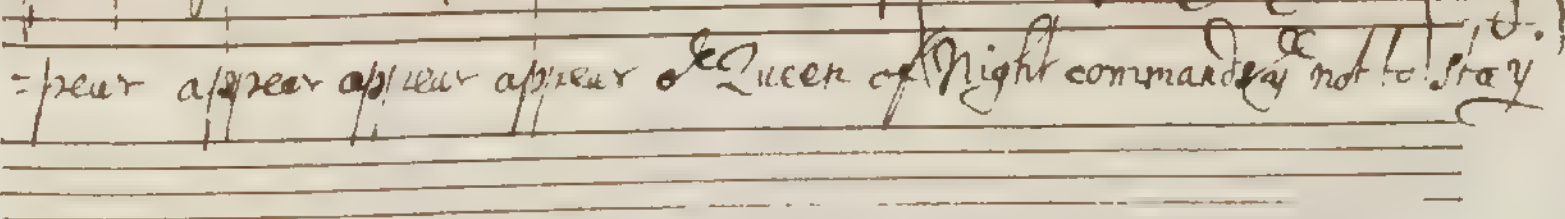 =pear appear appear appear ye Queen of Night commands ye not to stay